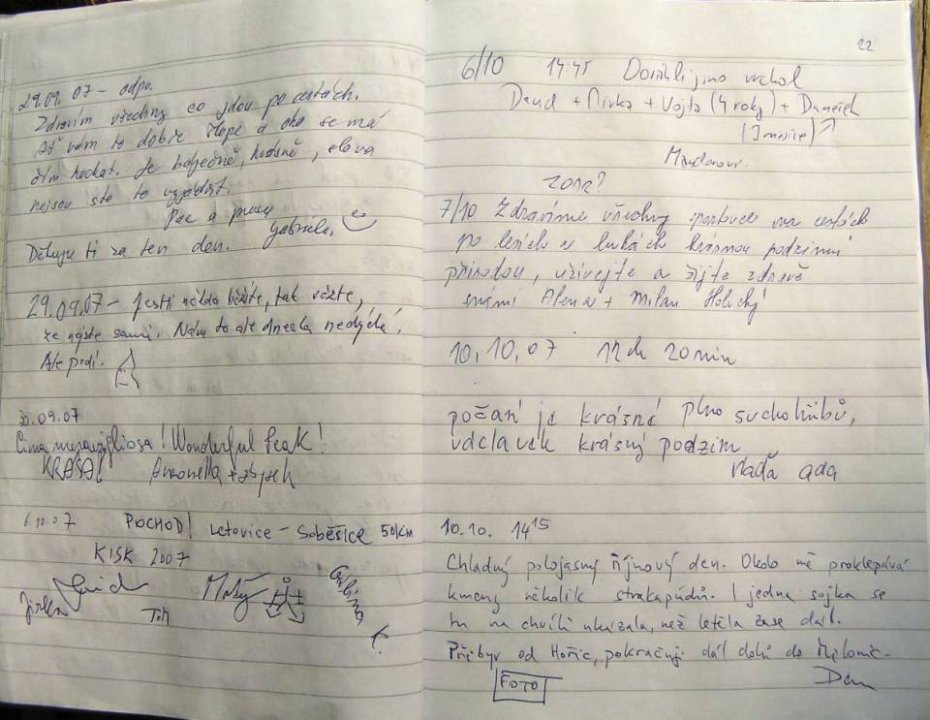 29.09.07 – odpo.
Zdravím všechny co jdou po cestách.
Ať vám to dobře šlape a oko se má
čím kochat. Je báječně, krásně, slova
nejsou sto to vyjádřit.
Pac a pusu
Děkuju ti za ten den. Gabriela.
29.09.07 – Jestli někdo běžíte, tak vězte,
že nejste sami. Nám to ale dneska nedýchá.
Ale prdí.
30.09.07
Cima meravigliosa! Wonderful Peak!
KRÁSA! Antonella +
6.10.07 POCHOD! Letovice – Soběšice 50KM
KISK 2007
Jirka
Tom
22
6/10 14:45 Dosáhli jsme vrchol
David + Mirka + Vojta (4 roky) + Daneček
(3 měsíce)
7/10 Zdravíme všechny sportovce na cestách
po lesích a lukách krásnou podzimní
přírodou, užívejte a žijte zdravě
s námi Alena + Milan
10,10,07 12h 20min
počasí je krásné plno suchohřibů,
václavek krásný podzim
Naďa ada
10.10. 14¹⁵
Chladný polojasný říjnový den. Okolo mě proklepává
kmeny několik strakapoudů. I jedna sojka se
tu na chvíli ukázala, než letěla zase dál.
Přibyv od Hořic, pokračuji dál dolů do Miletic.
FOTO Dan